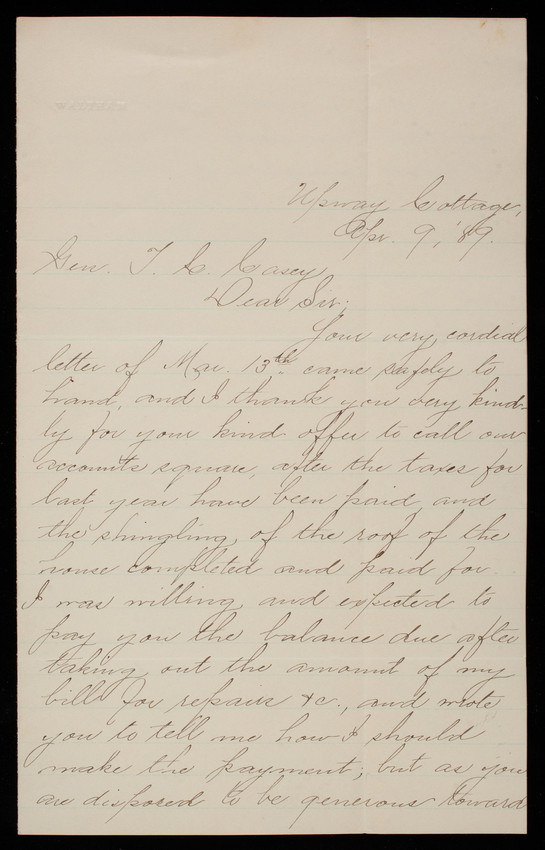 Upway Cottage,
Apr. 9, '89.
Gen. T. L. Casey,
Dear Sir;
Your very cordial
letter of Mar. 13th came safely to
hand, and I thank you very kind-
ly for your kind offer to call our
accounts square, after the taxes for
last year have been paid and
the shingling of the roof of the
house completed and paid for.
I was willing and expected to
pay you the balance due after
taking out the amount of my
bills for repairs &c., and wrote
you to tell me how I should
make the payment; but as you
are disposed to be generous toward